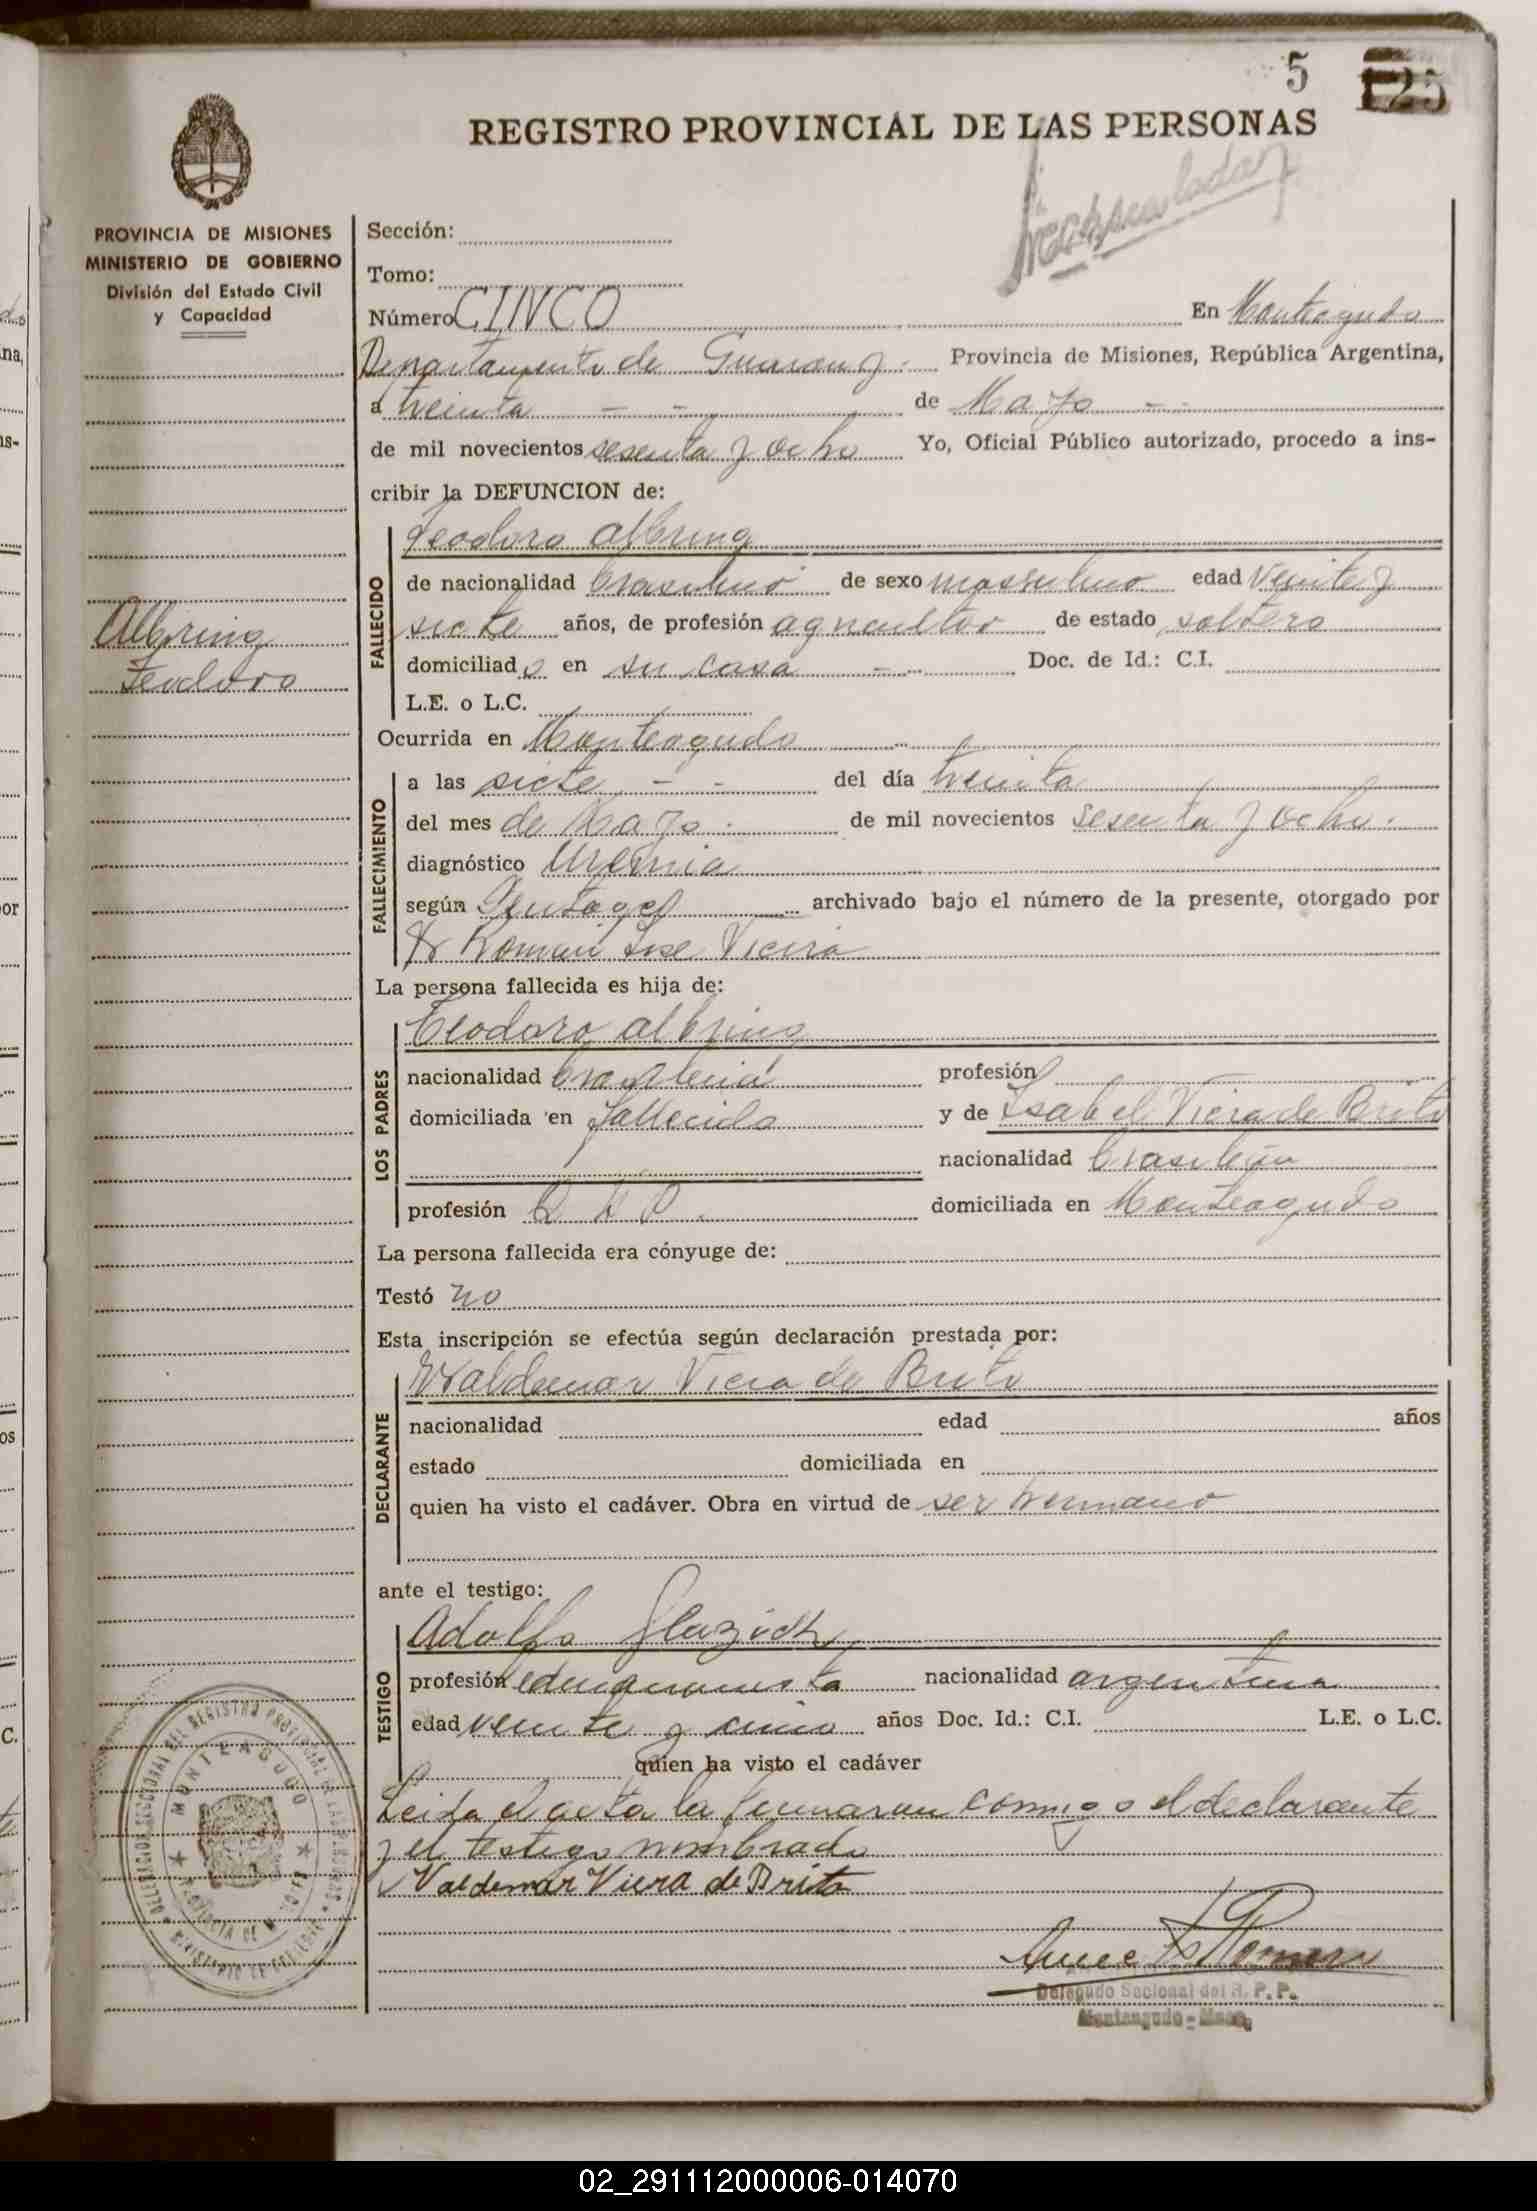 5
125
REGISTRO PROVINCIAL DE LAS PERSONAS
PROVINCIA DE MISIONES
MINISTERIO DE GOBIERNO
División del Estado Civil
y Capacidad
Albring
Teodoro
Sección:
Tomo:
Número CINCO En Monteagudo
Departamento de Guarany Provincia de Misiones, República Argentina,
a treinta - - de Mayo - -
de mil novecientos sesenta y ocho Yo, Oficial Público autorizado, procedo a ins-
cribir la DEFUNCION de:
FALLECIDO
Teodoro Albring
de nacionalidad brasilero de sexo masculino edad veinte y
siete años, de profesión agricultor de estado soltero
domiciliad o en su casa - Doc. de Id.: C.I.
L.E. o L.C.
Ocurrida en Monteagudo
FALLECIMIENTO
a las siete - - del día treinta
del mes de Mayo de mil novecientos sesenta y ocho.
diagnóstico Uremia
según archivado bajo el número de la presente, otorgado por
Dr Roman Jose Vieira
La persona fallecida es hija de:
LOS PADRES
Teodoro Albring
nacionalidad profesión
domiciliada en fallecido y de Isabel Viera de Brito
nacionalidad
profesión domiciliada en Monteagudo
La persona fallecida era cónyuge de:
Testó no
Esta inscripción se efectúa según declaración prestada por:
DECLARANTE
Waldemar Viera de Brito
nacionalidad edad años
estado domiciliada en
quien ha visto el cadáver. Obra en virtud de ser hermano
ante el testigo:
TESTIGO
Adolfo
profesión nacionalidad argentina
edad veinte y cinco años Doc. Id.: C.I. L.E. o L.C.
quien ha visto el cadáver
Leida el acta la firmaron conmigo el declarante
y el testigo nombrado
Valdemar Viera de Brito
Delegado Seccional del R. P. P.
Monteagudo - Mnes.
MONTEAGUDO
02_291112000006-014070